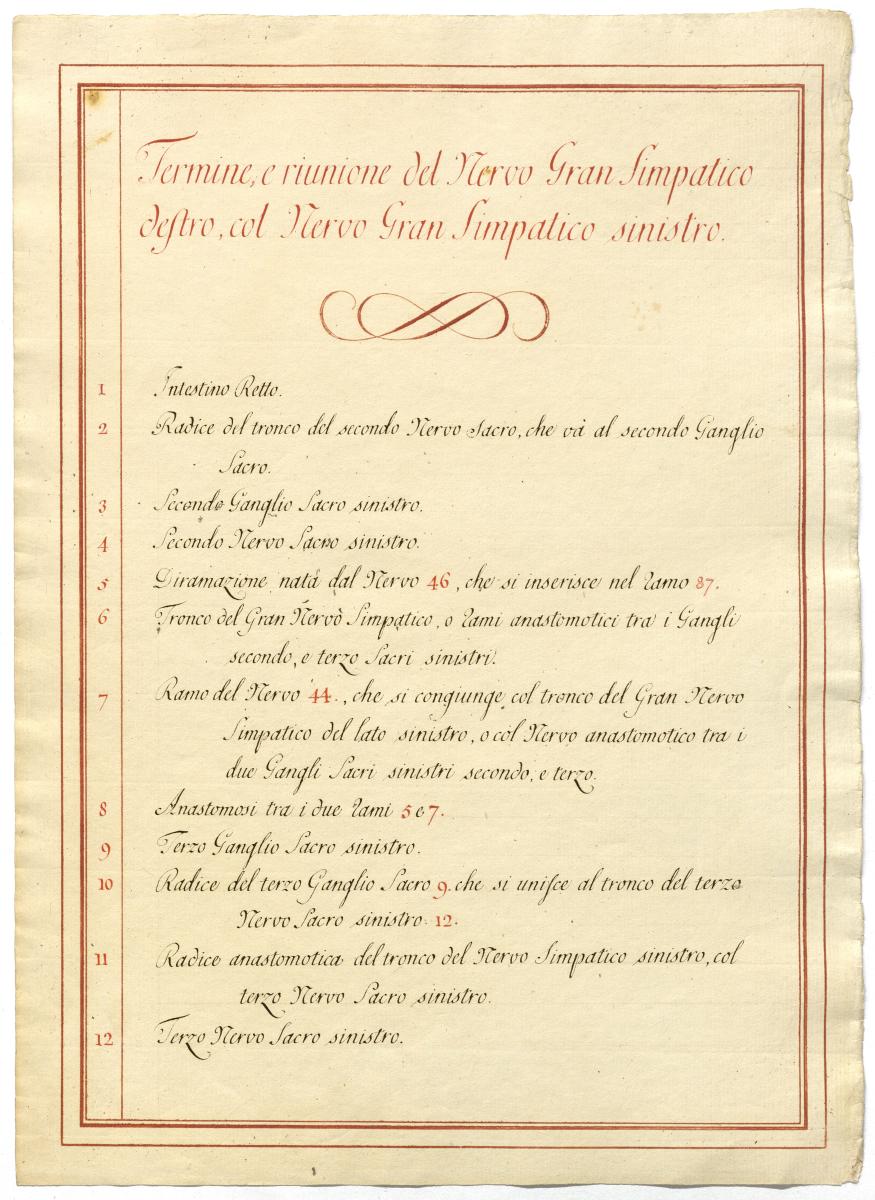 Termine, e riunione del Nervo Gran Simpatico
destro, col Nervo Gran Simpatico sinistro.
1 Intestino Retto.
2 Radice del tronco del secondo Nervo Sacro, che và al secondo Ganglio
Sacro.
3 Secondo Ganglio Sacro sinistro.
4 Secondo Nervo Sacro sinistro.
5 Diramazione nata dal Nervo 46, che si inserisce nel ramo 87.
6 Tronco del Gran Nervo Simpatico, o rami anastomotici tra i Gangli
secondo, e terzo Sacri sinistri.
7 Ramo del Nervo 44., che si congiunge col tronco del Gran Nervo
Simpatico del lato sinistro, o col Nervo anastomotico tra i
due Gangli Sacri sinistri secondo, e terzo.
8 Anastomosi tra i due rami 5 e 7.
9 Terzo Ganglio Sacro sinistro.
10 Radice del terzo Ganglio Sacro 9. che si unisce al tronco del terzo
Nervo Sacro sinistro 12.
11 Radice anastomotica del tronco del Nervo Simpatico sinistro, col
terzo Nervo Sacro sinistro.
12 Terzo Nervo Sacro sinistro.